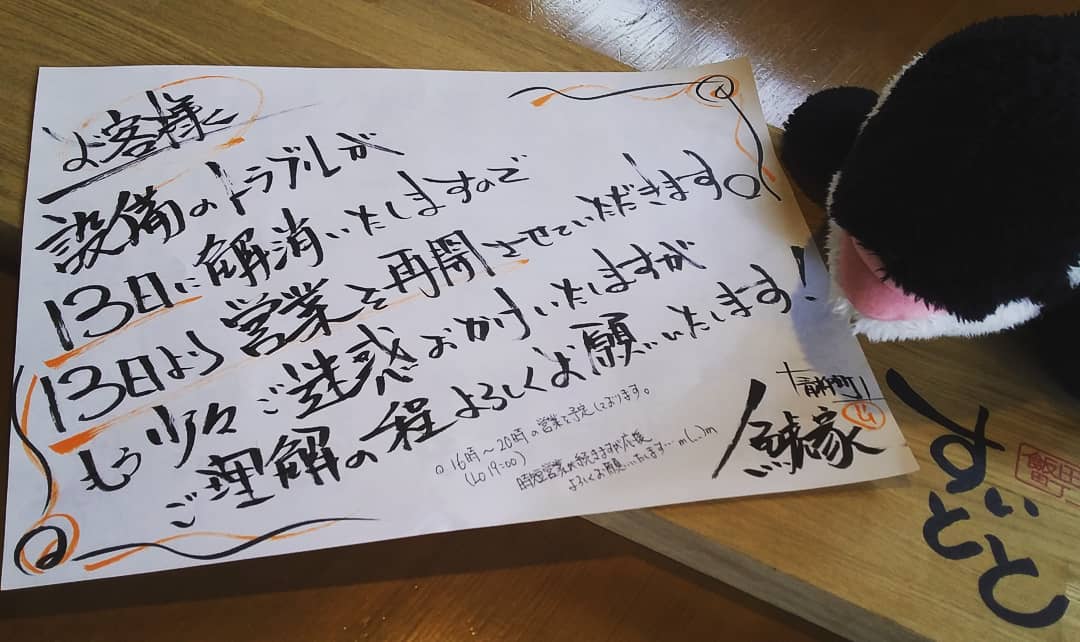 お客様へ
設備のトラブルが
13日に解消いたしますので
13日より営業を再開させていただきます。
もう少々ご迷惑おかけいたしますが
ご理解の程よろしくお願いいたします!
◦16時〜20時の営業を予定しております。
(LO 19:00)
時短営業が続きますが応援
よろしくお願いいたします… m(_ _)m
家
すいとと